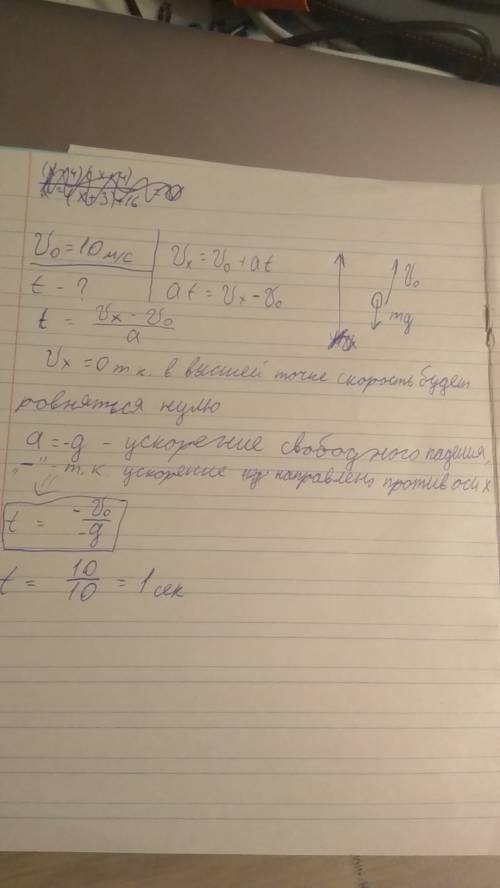 v₀ = 10 м/с
t - ?
vₓ = v₀ + at
at = vₓ - v₀
t = (vₓ - v₀)/a
v₀
mg
vₓ = 0 т.к. в высшей точке скорость будет
ровняться нулю
a = -g - ускорение свободного падения,
"-" - т.к ускорение направлено против оси x
t = -v₀/-g
t = 10/10 = 1 сек